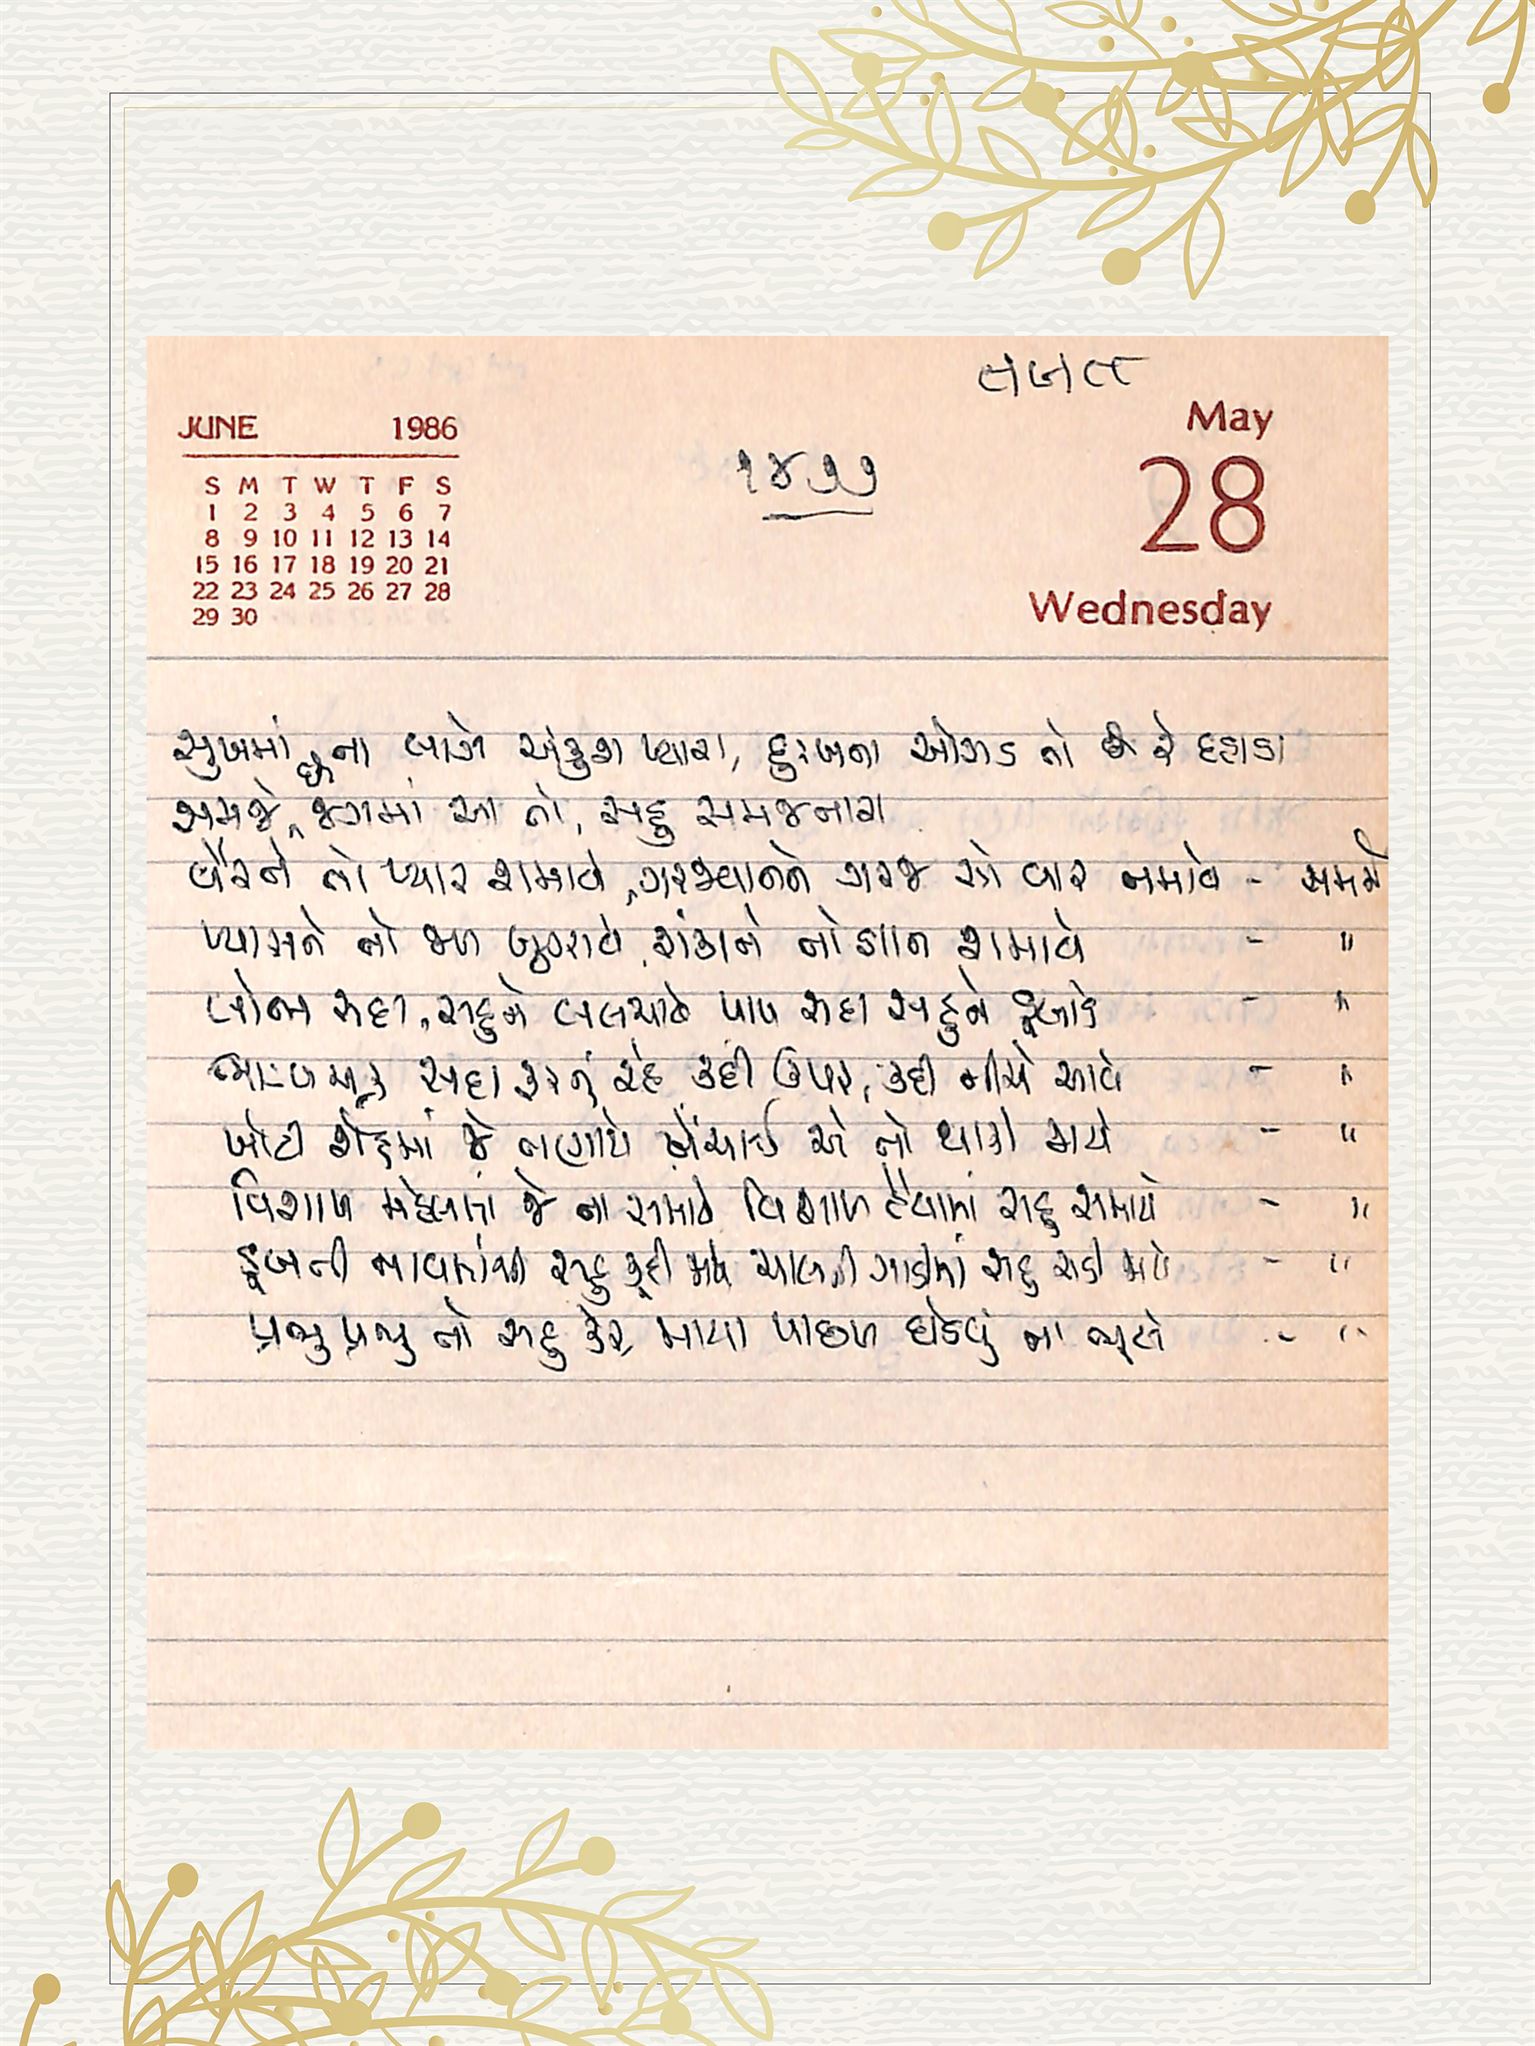 JUNE 1986
S M T W T F S
1 2 3 4 5 6 7
8 9 10 11 12 13 14
15 16 17 18 19 20 21
22 23 24 25 26 27 28
29 30
૧૪૭૭
May
28
Wednesday
સુખમાં છે ના લાગે અંકુશ પ્યારા, દુઃખના ઓસડ તો છે રે દહાડા
સમજે, જગમાં આ તો, સહુ સમજનારા
વૈરને તો પ્યાર શમાવે, ગરજવાનને ગરજ સો વાર નમાવે - સમજે
પ્યાસને તો જળ બુઝાવે, શંકાને તો જ્ઞાન શમાવે - "
લોભ સદા, સહુને લલચાવે પાપ સદા સહુને ડૂબાડે - "
ભાગ્ય ચક્ર સદા ફરતું રહે કદી ઉપર, કદી નીચે આવે - "
ખોટી દિશામાં જે તણાયે ખેંચાઈ એ તો થાકી જાયે - "
વિશાળ મહેલમાં જે ના સમાવે વિશાળ હૈયામાં સહુ સમાયે - "
ડૂબતી નાવમાંથી સહુ કૂદી જાયે ચાલતી ગાડીમાં સહુ ચડી જાયે - "
પ્રભુ પ્રભુ તો સહુ કરે, માયા પાછળ દોડવું ના ભૂલે - "